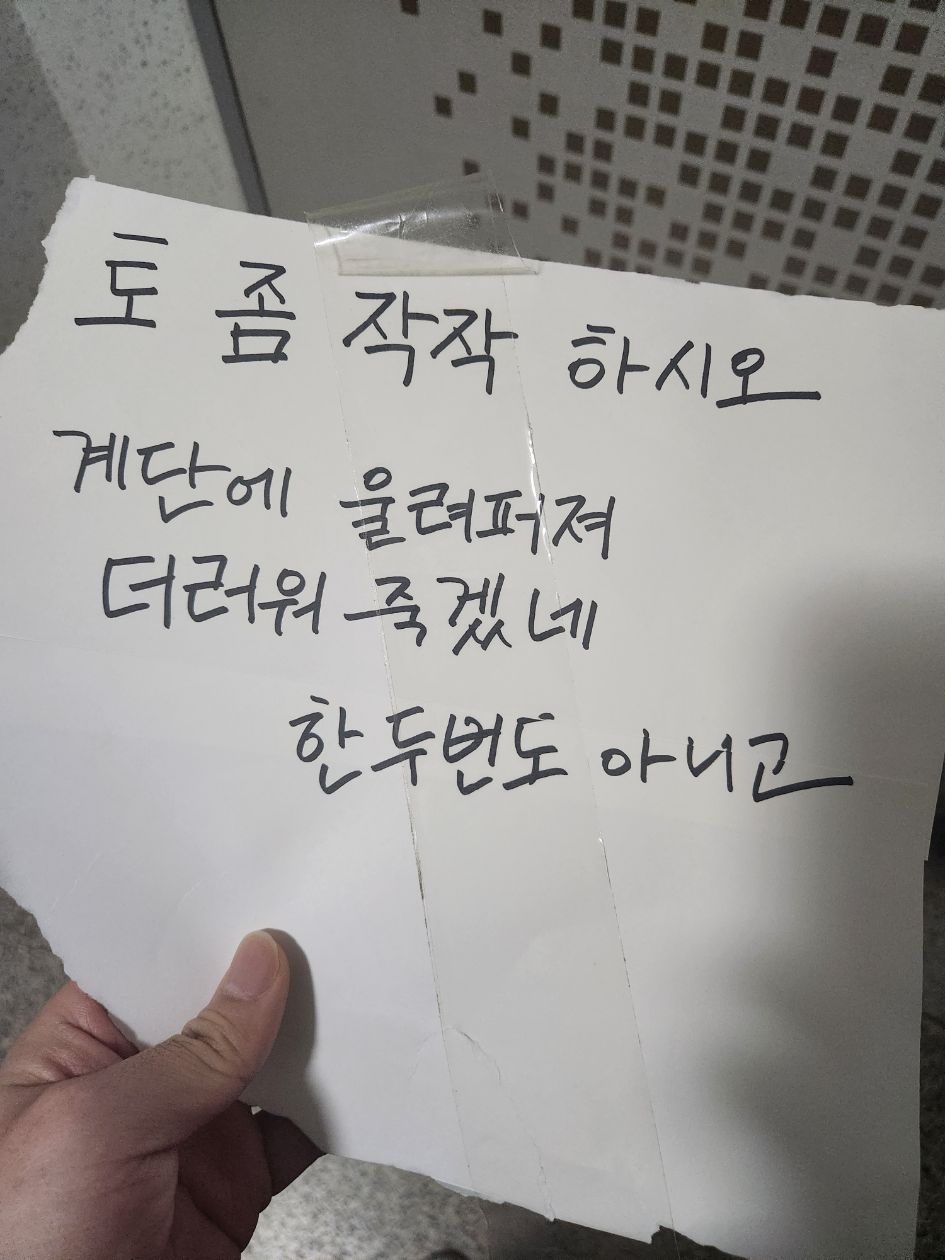 토 좀 작작 하시오
계단에 울려퍼져
더러워 죽겠네
한두번도 아니고